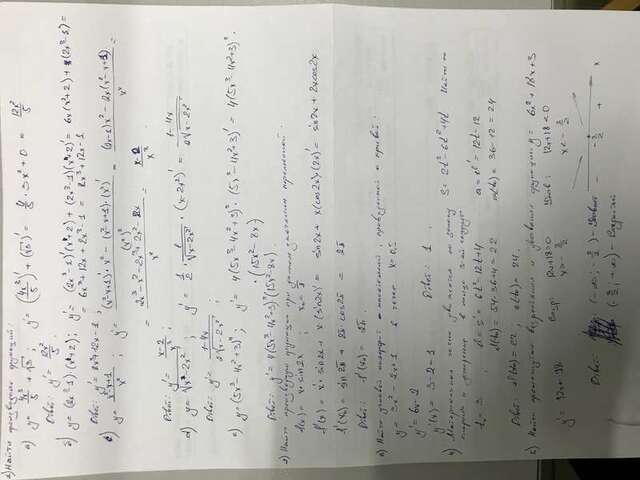 1) Найти производные функций:
а) y = 4x³/5 + √3 ; y' = (4x³/5)' + (√3)' = 4/5 · 3x² + 0 = 12x²/5
Ответ: y' = 12x²/5.
y = (2x³-1)·(x²+2); y' = (2x³-1)'(x²+2) + (2x³-1)(x²+2)' =
Ответ: y' =
y = (x²-x+1)/x² ; y' = ((x²-x+1)'·x² - (x²-x+1)·(x²)')/(x²)² = ((2x-1)x² - 2x(x²-x+1))/x⁴ =
= (x-2)/x³
Ответ: y' = (x-2)/x³ ;
d) y = √(x-2x²) ; y' = 1/2 · 1/√(x-2x²) · (x-2x²)' = (1-4x)/(2√(x-2x²))
Ответ: y' = (1-4x)/(2√(x-2x²)) ;
y = (5x³-4x²+3)⁴ ; y' = 4(5x³-4x²+3)³ · (5x³-4x²+3)' = 4(5x³-4x²+3)³ ·
· (15x²-8x)
Ответ: y' = 4(5x³-4x²+3)³(15x²-8x).
Найти производную функции при данном значении переменной.
f(x) = x·sin2x ;
f'(x) = x'·sin2x + x·(sin2x)' = sin2x + x(cos2x)·(2x)' = sin2x + 2xcos2x
f'(x₀) = sin2π + 2π·cos2π = 2π
Ответ: f'(x₀) = 2π.
Найти угловой касательной, проведенной к кривой:
y = 3x² - 2x+1 в точке x=0,5
y' = 6x-2
y'(x) = 3-2=1 Ответ: 1.
4) Материальная точка движется по закону S = 2t³-6t²+4t Найти
скорость и ускорение в конце 3-ей секунды
t₀ = 3 v = s' = 6t²-12t+4 a = v' = 12t-12
v(t₀) = 54-36+4=22 a(t₀) = 36-12=24
Ответ: v(t₀) = 22; a(t₀) = 24.
5) Найти промежутки возрастания и убывания функции y = 6x²+18x+3
y' = 12x+18 Возр: 12x+18>0 Убыв: 12x+18<0
x>-3/2 x<-3/2
Ответ: (-∞; -3/2) - Убывает - -3/2 + x
(-3/2; +∞) - Возрастает